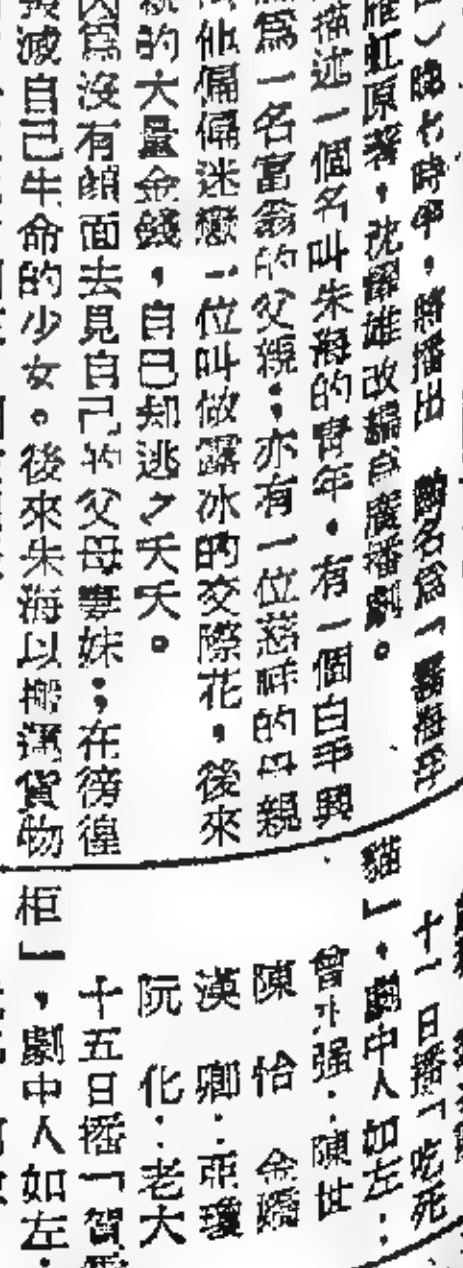 晚七時半，將播出 劇名為「霧海浮
雁虹原著，沈耀雄改編為廣播劇。
描述一個名叫朱海的青年，有一個白手興
為一名富翁的父親；亦有一位慈祥的母親
他偏偏迷戀一位叫做露冰的交際花，後來
的大量金錢，自己知逃之夭夭。
因為沒有顏面去見自己的父母妻妹；在徬徨
毀滅自己生命的少女。後來朱海以搬運貨物
十一日播「吃死
貓」，劇中人如左：
曾 强：陳世
陳怡 金嬌
漢卿：亞瓊
阮化：老大
十五日播「賀
柜」，劇中人如左：